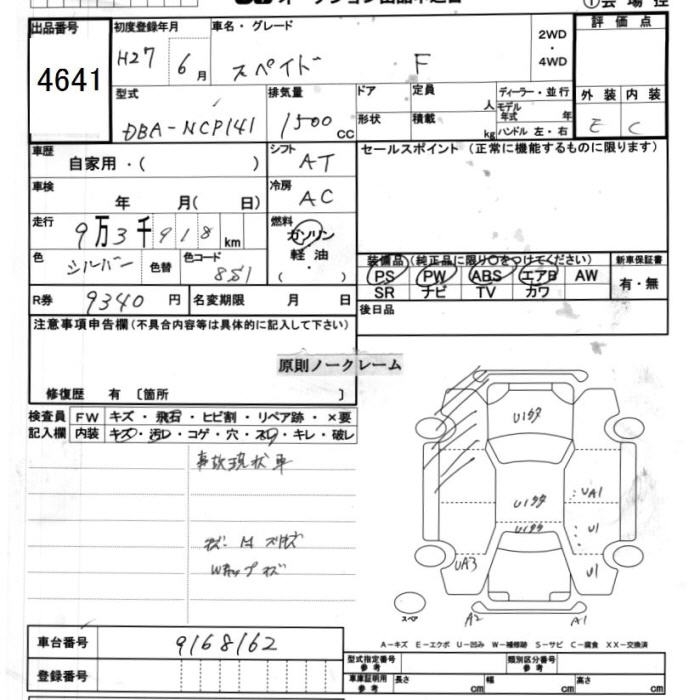 出品番号 4641
初度登録年月 H27 6月
車名・グレード スペイド F
2WD・4WD
評価点
外装 内装
E C
型式 DBA-NCP141
排気量 1500cc
ドア 形状
定員 人
積載 kg
ディーラー・並行
モデル年式 年
ハンドル 左・右
車歴 自家用・( )
シフト AT
セールスポイント (正常に機能するものに限ります)
車検 年 月( 日)
冷房 AC
走行 9万3千918km
燃料 ガソリン
軽油
( ・ )
色 シルバー 色替 色コード 8S1
装備品 (純正品に限り○をつけてください)
PS PW ABS エアB AW
SR ナビ TV カワ
新車保証書
有・無
R券 9340円 名変期限 月 日
後日品
注意事項申告欄(不具合内容等は具体的に記入して下さい)
原則ノークレーム
修復歴 有 〔箇所 〕
検査員記入欄
FW キズ・飛石・ヒビ割・リペア跡・×要
内装 キズ・汚レ・コゲ・穴・スレ・キレ・破レ
事故現状車
U199
U199
UA1
U199
U1
UA3
U1
スペア
A2
A1
A-キズ E-エクボ U-凹み W-補修跡 S-サビ C-腐食 XX-交換済
車台番号 9168162
登録番号
型式指定番号 参考
類別区分番号 参考
車庫証明用 参考 長さ cm 幅 cm 高さ cm